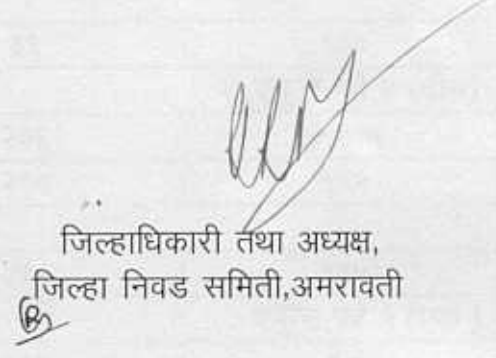 जिल्हाधिकारी तथा अध्यक्ष,
जिल्हा निवड समिती,अमरावती